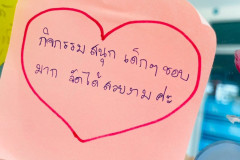 กิจกรรมสนุก เด็กๆ ชอบ
มาก จัดได้สวยงามค่ะ